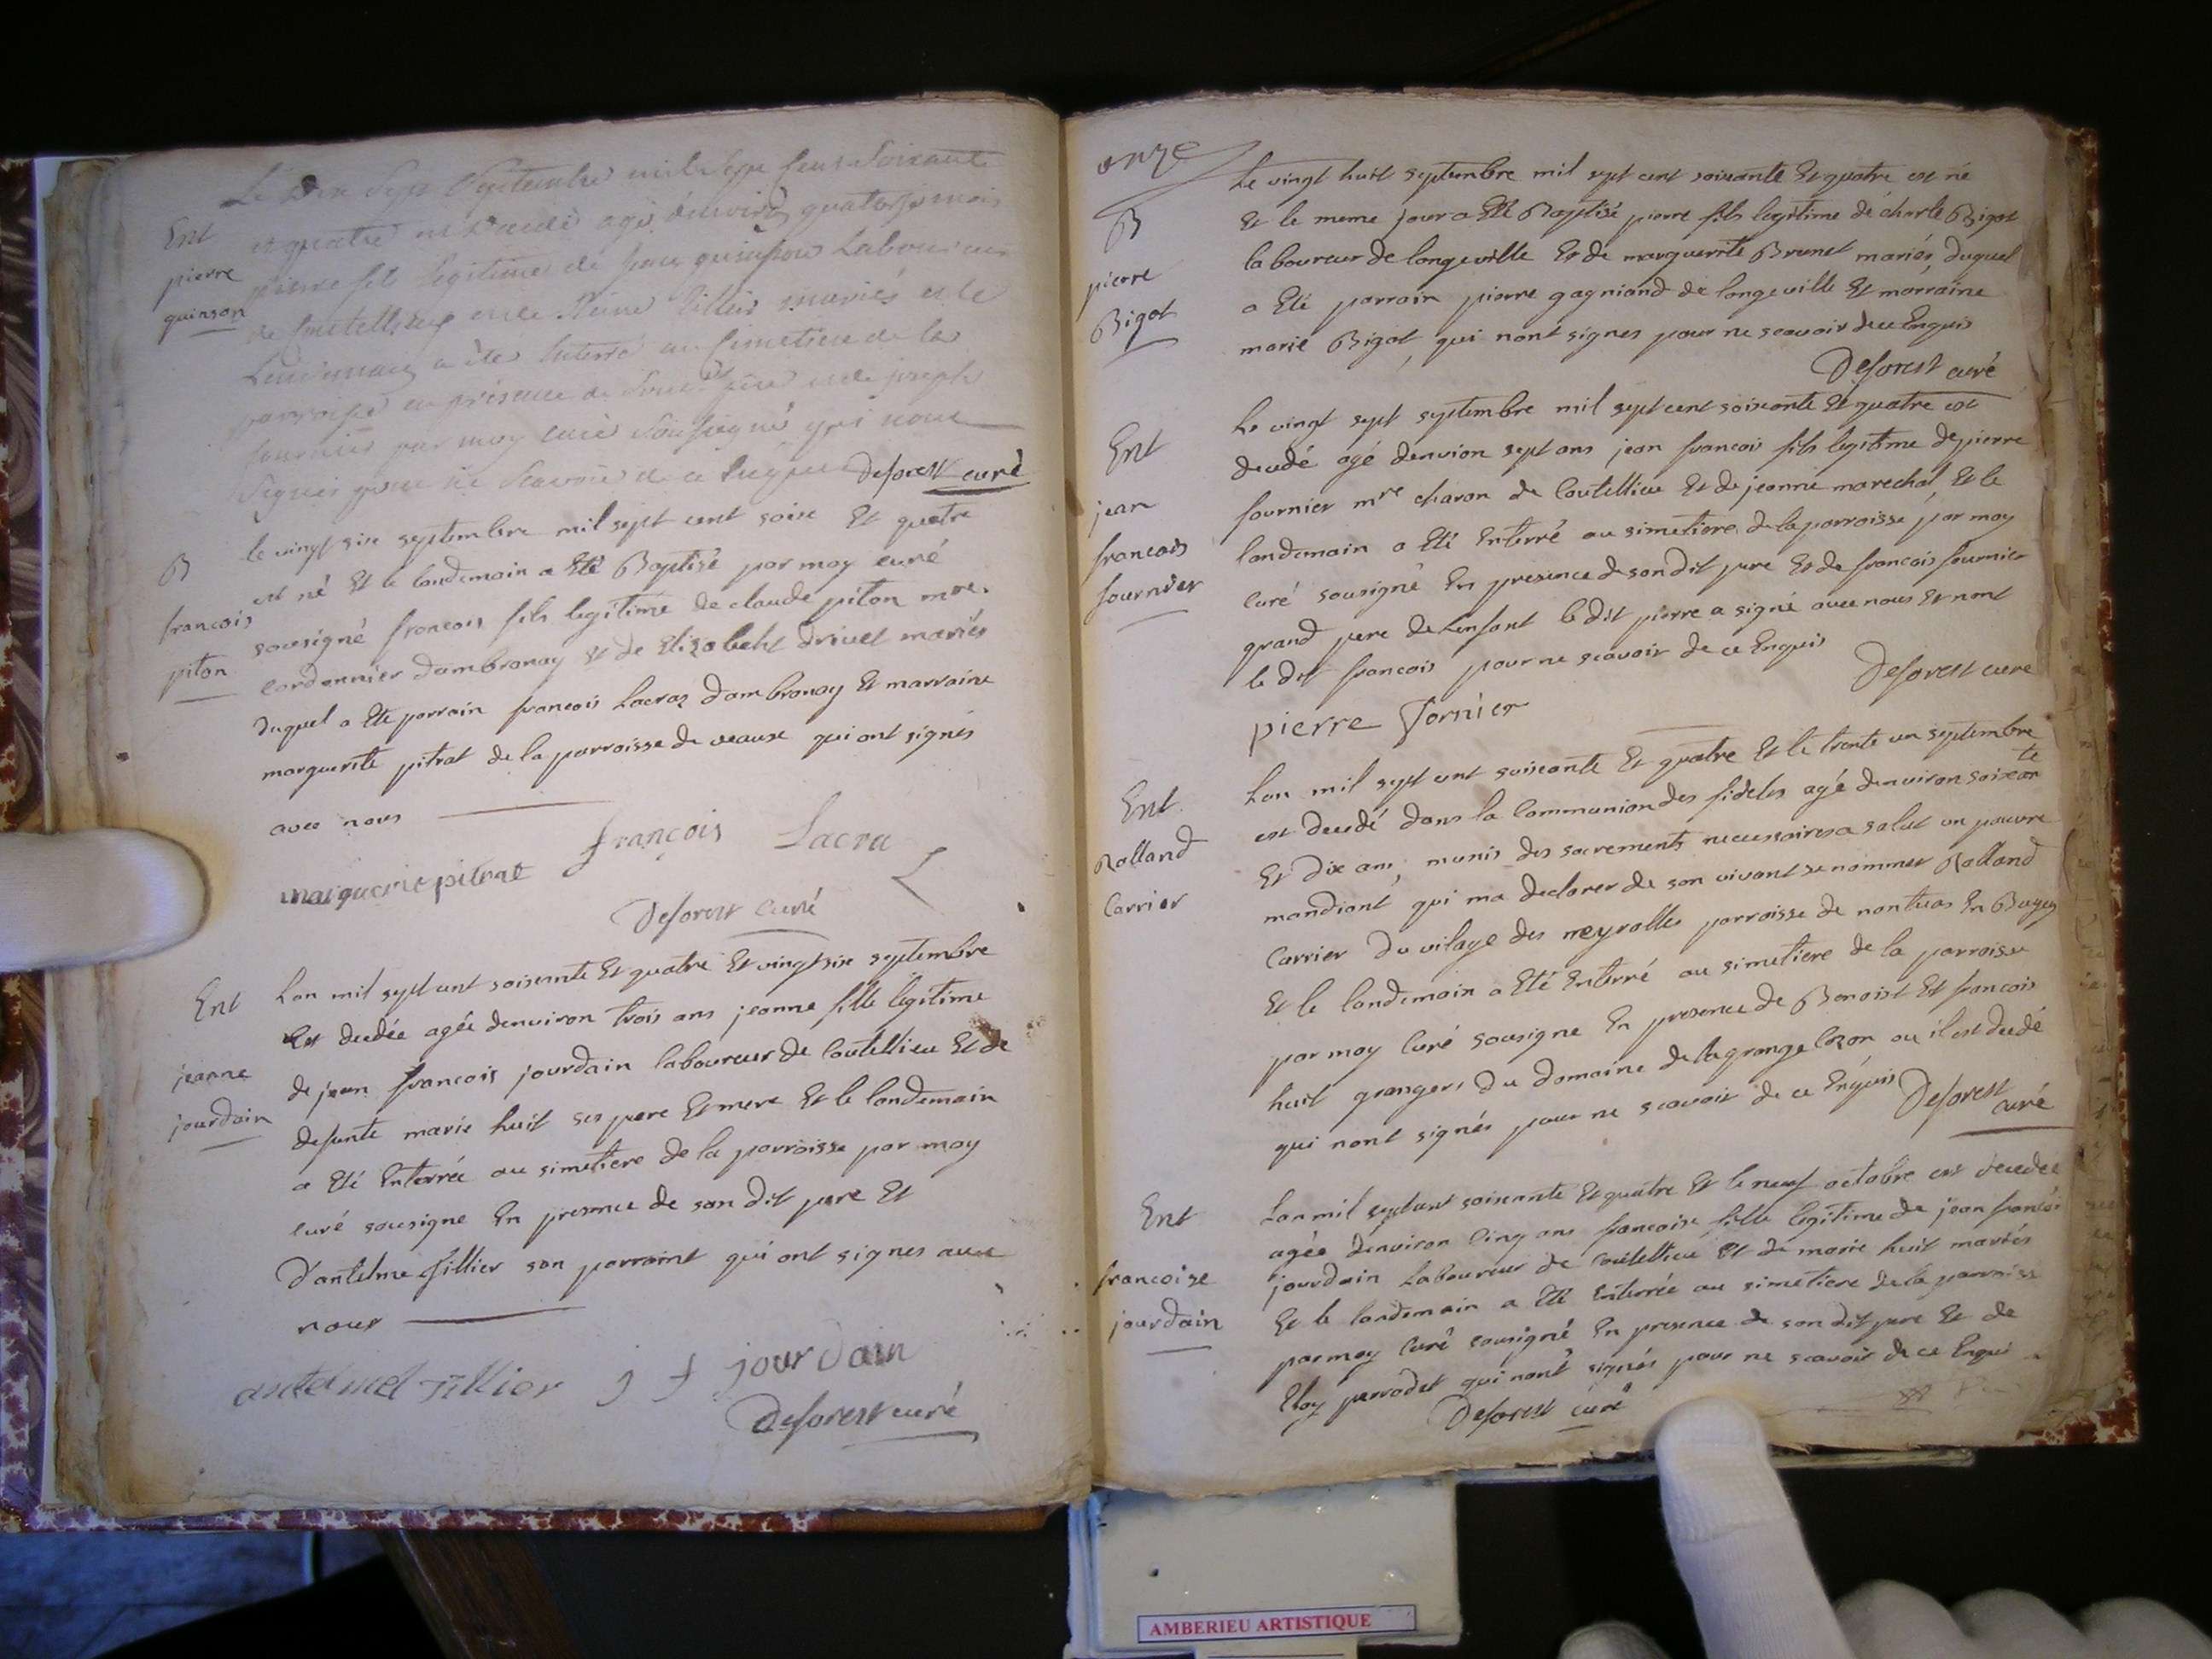 Ent
pierre
quinson
Le Dix Sept Septembre mil Sept Cent Soixante
et quatre est decedé agé denviron quatorze mois
pierre fils legitime de quinson Laboureur
de Coutellieu et de Reine tillier mariés et le
Lendemain a été Enterré au Cimetiere de la
parroisse en présence de Sondit père et de joseph
fournier par moy curé Soussigné qui nont
Signés pour ne Scavoir de ce Enquis Deforest curé
B
francois
piton
le vingt six septembre mil sept cent soixe Et quatre
est né Et le landemain a Eté Baptisé par moy curé
sousigné francois fils legitime de claude piton mre.
Cordonnier dambronay Et de Elizabeht drivet mariés
duquel a Ete parrain francois Lacraz dambronay Et marraine
marguerite pitrat de la parroisse de veaux qui ont signés
avec nous
françois Lacra
marguerite pitrat
Deforest Curé
Ent
jeanne
jourdain
Lan mil sept cent soixante Et quatre Et vingt six septembre
Est decdée agée denviron trois ans jeanne fille legitime
de jean francois jourdain laboureur de Coutellieu Et de
defunte marie huit ses pere Et mere Et le landemain
a Eté Enterrée au simetiere de la parroisse par moy
curé sousigne En presence de son dit pere Et
D'antelme tillier son parraint qui ont signes avec
nous
antelmel Tillier j f jourdain
Deforest curé
onze
B
pierre
Bigot
Le vingt huit septembre mil sept cent soixante Et quatre est né
Et le meme jour a Eté Baptisé pierre fils legitime de charle Bigot
laboureur de longeville Et de marguerite Brunet mariés, duquel
a Eté parrain pierre gagniand de longeville Et marraine
marie Bigot, qui nont signes pour ne scavoir de ce Enquis
Deforest curé
Ent
jean
francois
fournier
Le vingt sept septembre mil sept cent soixante Et quatre est
decedé agé denvion sept ans jean francois fils legitime de pierre
fournier mre charon de Coutellieu Et de jeanne marechal, Et le
landemain a Eté Enterré au simetiere de la parroisse par moy
Curé sousigné En presence de son dit pere Et de francois fournier
grand pere de Lenfant le dit pierre a signé avec nous Et nont
le dit francois pour ne scavoir de ce Enquis
Deforest cure
pierre Fornier
Ent
Rolland
Carrier
Lan mil sept cent soixante Et quatre Et le trente un septembre
est decedé dans la Communion des fideles agé denviron soixante
Et dix ans, munis des sacrements necessaires a salut un pauvre
mandiant qui ma declarer de son vivant se nommer Rolland
Carrier du vilage des neyrolles parroisse de nantuas En Bugey
Et le landemain a Eté Enterré au simetiere de la parroisse
par moy Curé sousigne En presence de Benoist Et francois
huit grangers du domaine de la grange Cozon ou il est decedé
qui nont signés pour ne scavoir de ce Enquis Deforest
curé
Ent
francoise
jourdain
Lan mil sept cent soixante Et quatre Et le neuf octobre est decedee
agée denviron Cinq ans francoise fille legitime de jean francois
jourdain Laboureur de Coutellieu Et de marie huit mariés
Et le landemain a Eté Enterrée au simetiere de la parroisse
par moy Curé sousigné En presence de son dit pere Et de
Eloy perrodet qui nont signés pour ne scavoir de ce Enqui
Deforest curé
AMBERIEU ARTISTIQUE